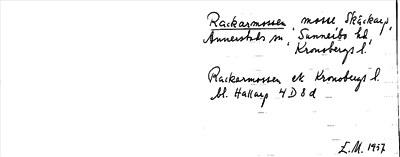 Rackarmossen, mosse Skäckarp,
Annerstads sn, Sunnerbo hd,
Kronobergs l.
Rackarmossen ek Kronobergs l.
bl. Hallarp 4D8d
L.M. 1957